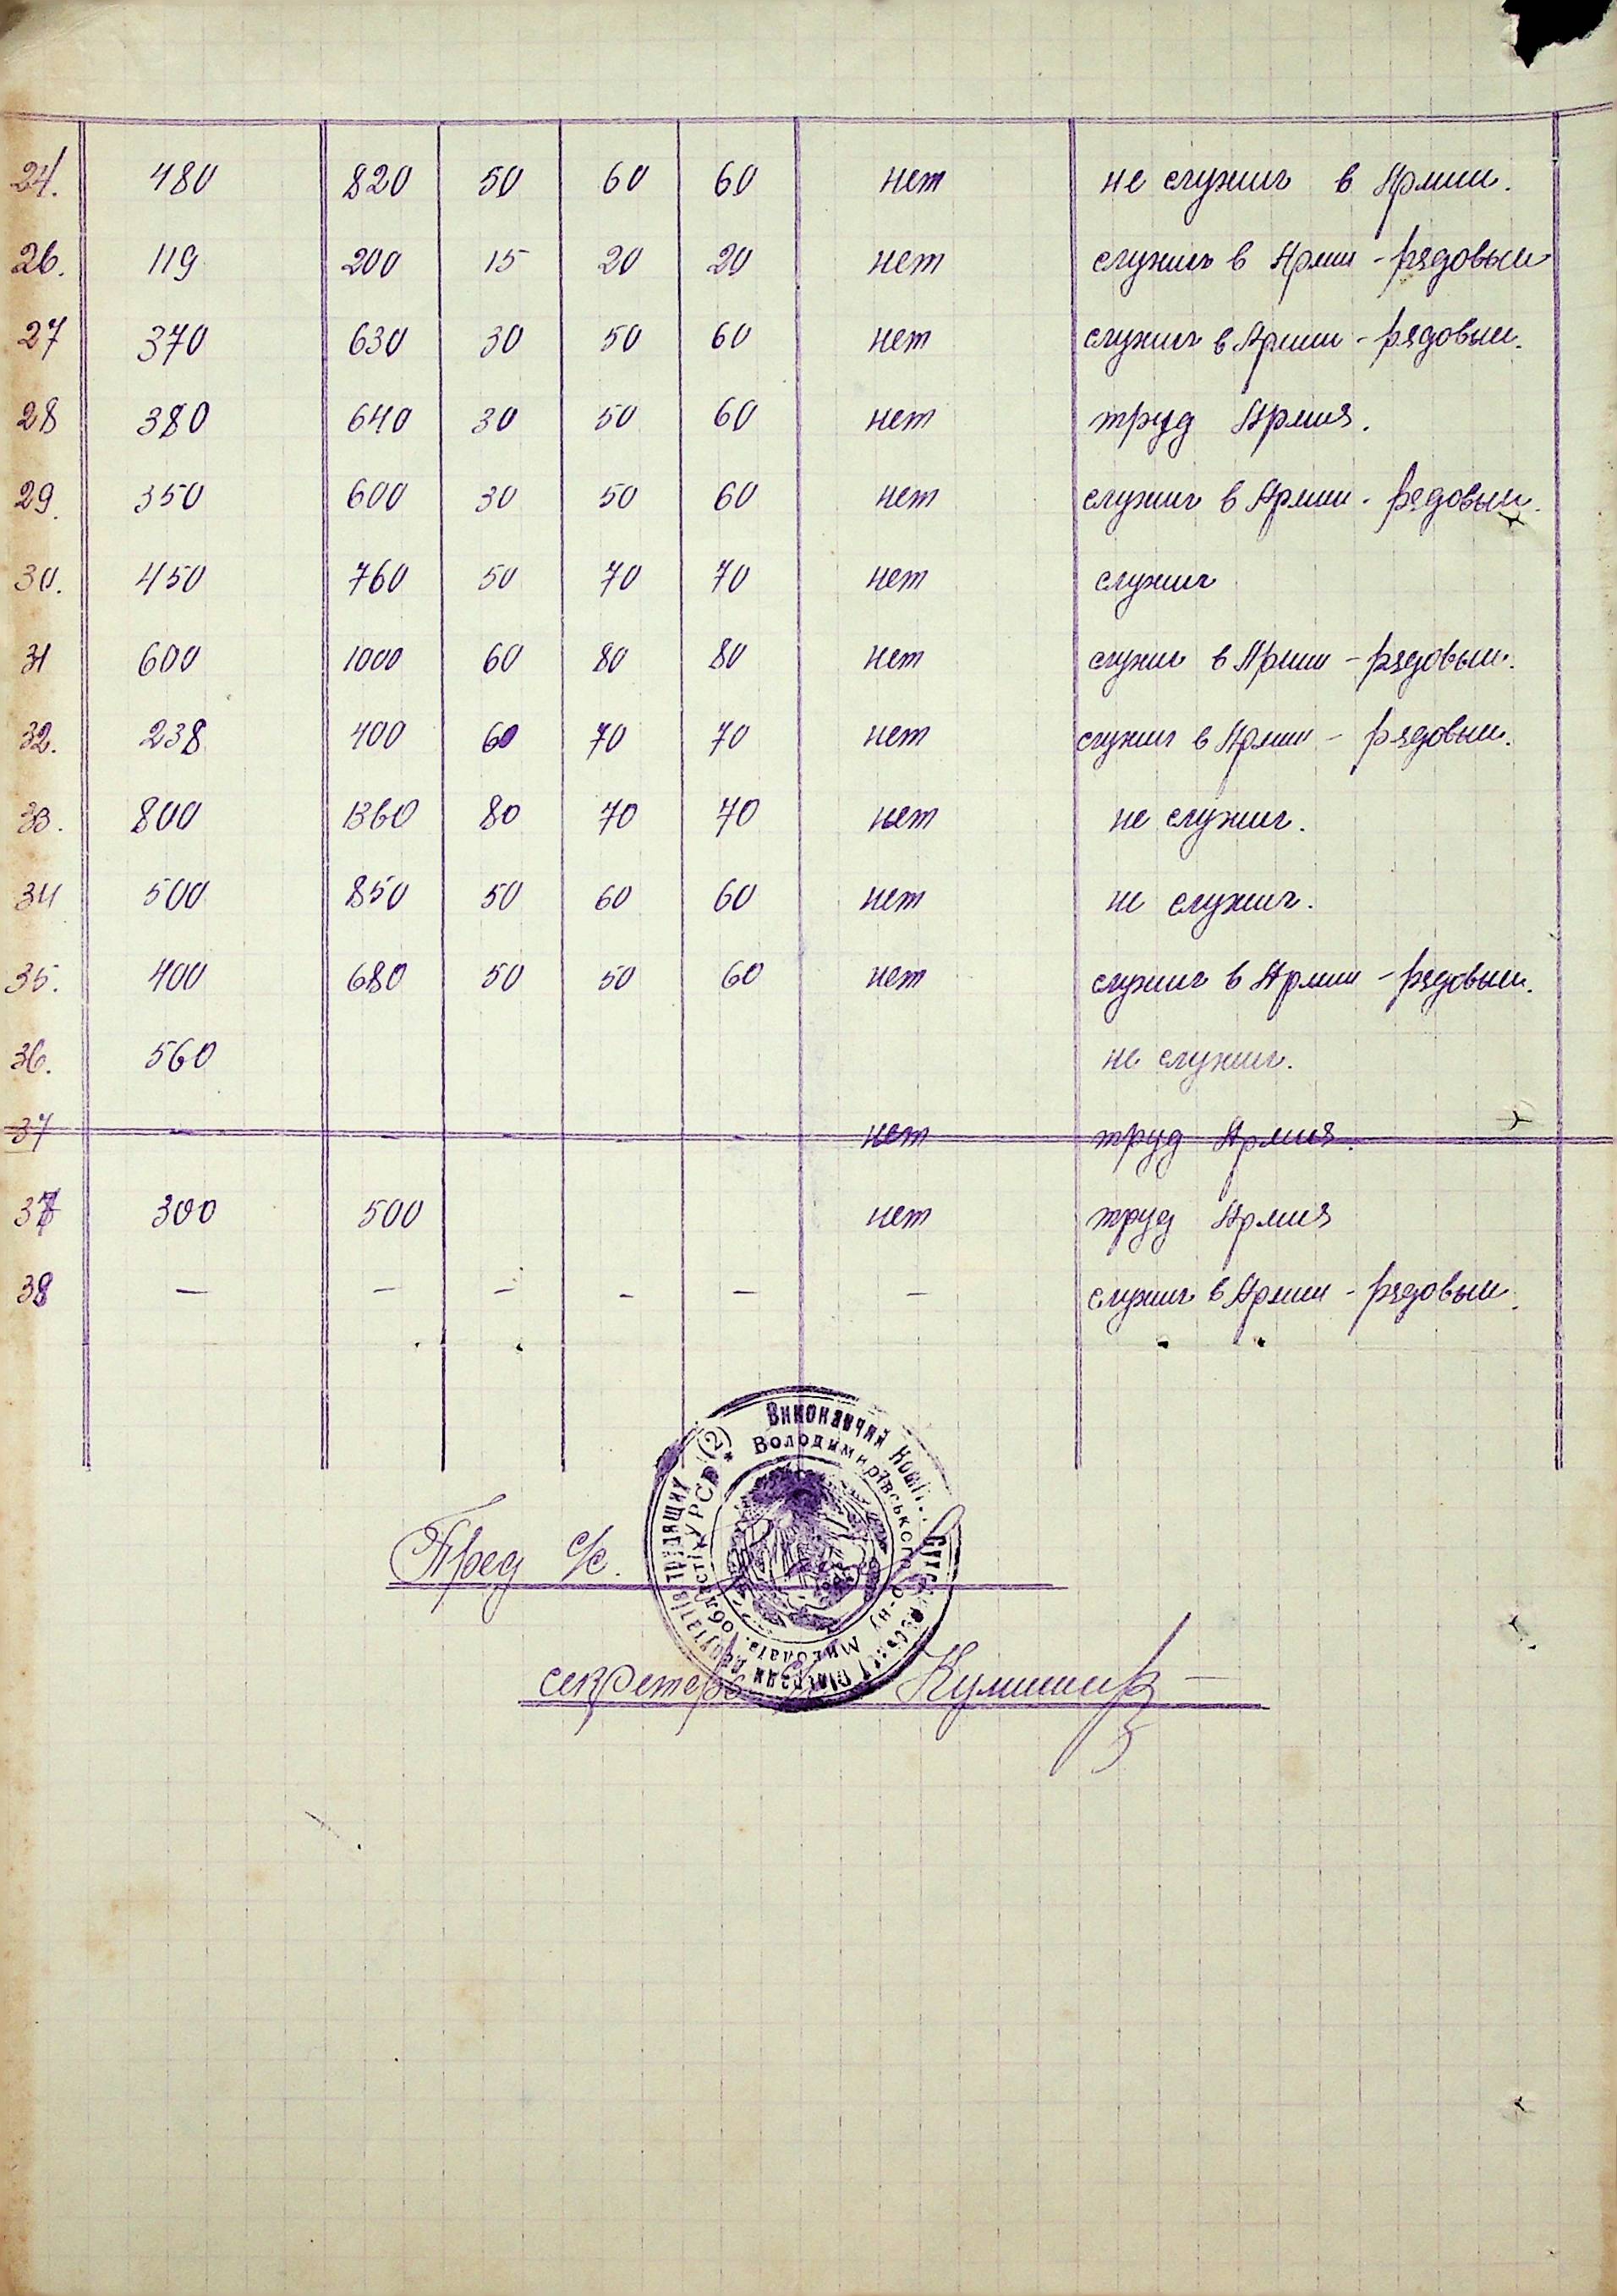 24. 480 820 50 60 60 нет не служил в Армии.
26. 119 200 15 20 20 нет служил в Армии - рядовым
27 370 630 30 50 60 нет служил в Армии - рядовым.
28 380 640 30 50 60 нет труд Армия.
29. 350 600 30 50 60 нет служил в Армии - рядовым.
30. 450 760 50 70 70 нет служил
31 600 1000 60 80 80 нет служил в Армии - рядовым.
32. 238 400 60 70 70 нет служил в Армии - рядовым.
33. 800 1360 80 70 70 нет не служил.
34 500 850 50 60 60 нет не служил.
35. 400 680 50 50 60 нет служил в Армии - рядовым.
36. 560 не служил.
37 - - - - - нет труд Армия.
37 300 500 нет труд Армия
38 - - - - - - служил в Армии - рядовым.
Виконавчий Коміт.
Володимирівського р-ну Миколаїв. області УРСР (2)
депутатів трудящих
Пред с/с.
секретарь